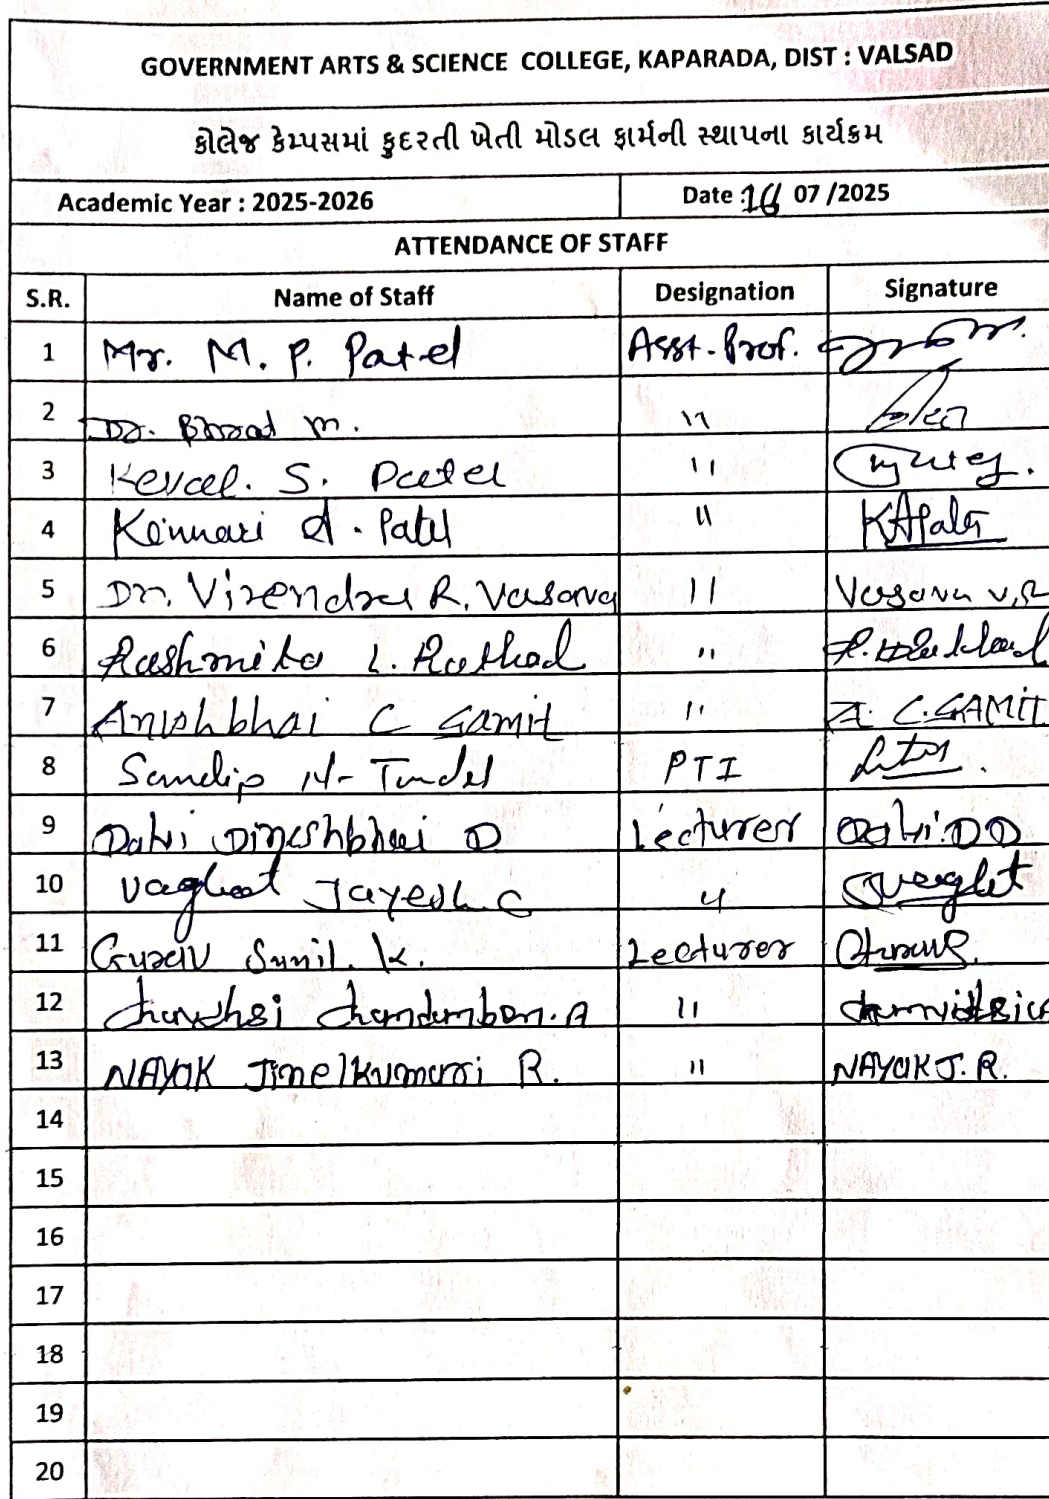 GOVERNMENT ARTS & SCIENCE COLLEGE, KAPARADA, DIST : VALSAD
કોલેજ કેમ્પસમાં કુદરતી ખેતી મોડલ ફાર્મની સ્થાપના કાર્યક્રમ
Academic Year : 2025-2026 Date : 16 07 /2025
ATTENDANCE OF STAFF
S.R. Name of Staff Designation Signature
1 Mr. M. P. Patel Asst. Prof.
2 Dr. Bharat M. "
3 Keval. S. Patel "
4 Kinnari A. Patel " KAPatel
5 Dr. Virendra R. Vasava " Vasava V.R
6 Rashmika L. Rathod "
7 Anishbhai C Gamit " A. C. GAMIT
8 Sandip H. Tandel PTI
9 Dalvi Dineshbhai D Lecturer Dalvi.DD
10 Vaghat Jayesh C " Vaghat
11 Gurav Sunil. K. Lecturer
12 "
13 NAYAK Jinelkumari R. " NAYAK J. R.
14
15
16
17
18
19
20